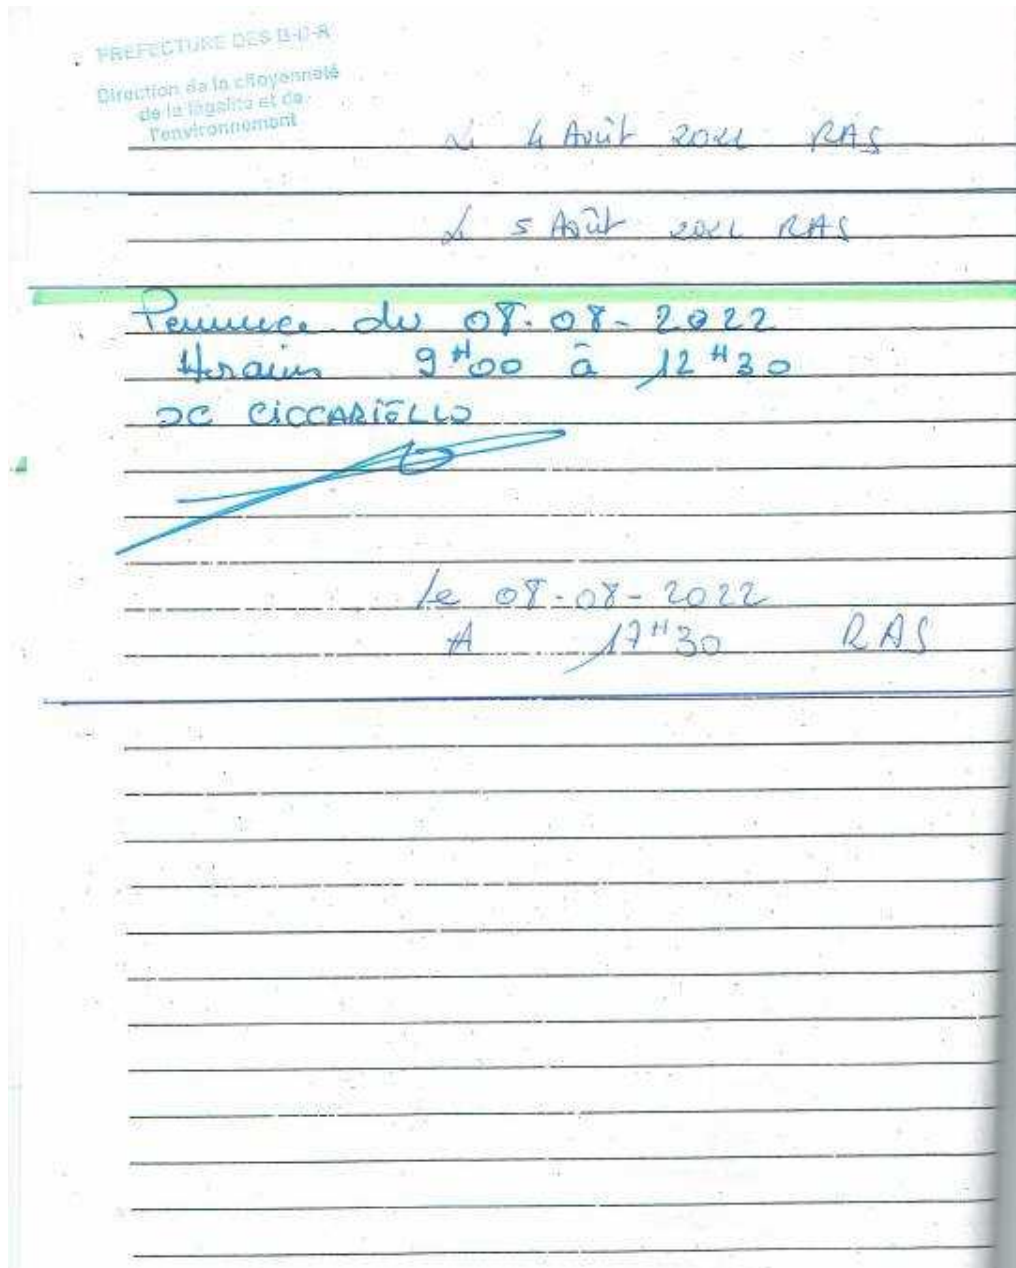 PREFECTURE DES B-D-R
Direction de la citoyenneté
de la légalité et de
l'environnement
Le 4 Août 2022 RAS
Le 5 Août 2022 RAS
Permanence du 08-08-2022
Horaires 9H00 à 12H30
JC CICCARIELLO
le 08-08-2022
A 17H30 RAS